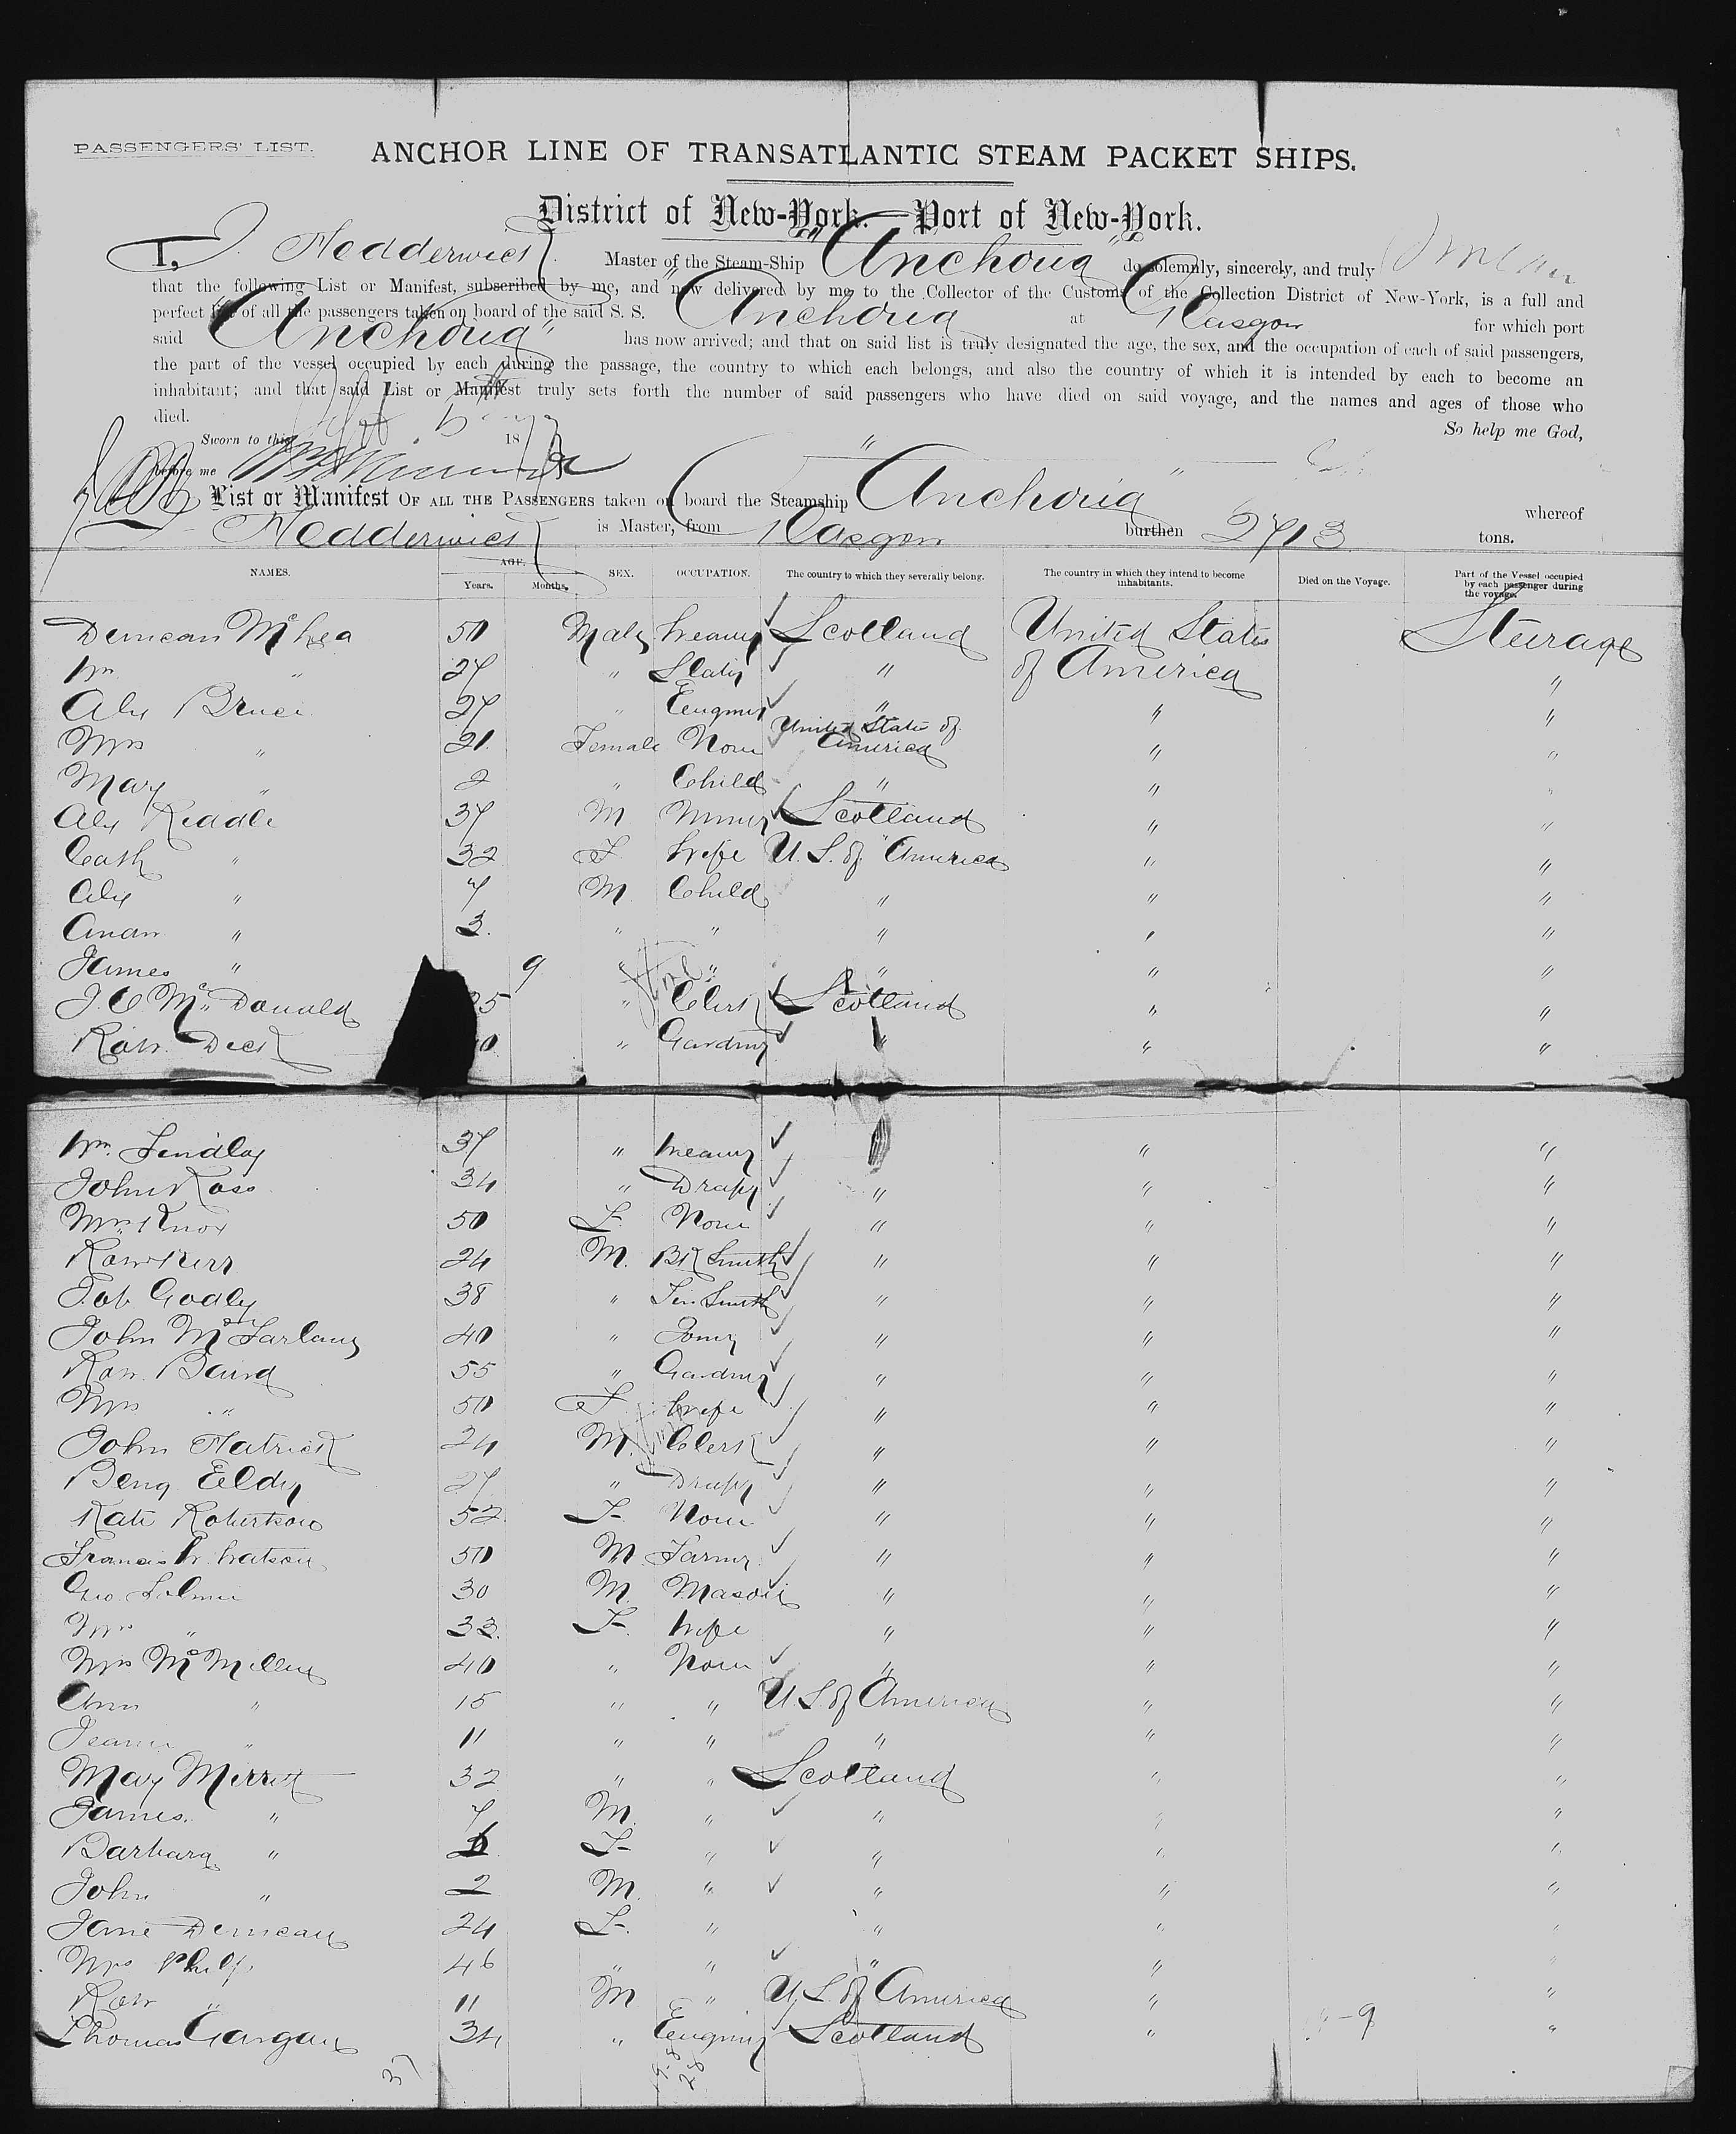 PASSENGERS' LIST.
ANCHOR LINE OF TRANSATLANTIC STEAM PACKET SHIPS.
District of New-York.—Port of New-York.
I, J. Hedderwick Master of the Steam-Ship "Anchoria" do solemnly, sincerely, and truly
that the following List or Manifest, subscribed by me, and now delivered by me to the Collector of the Customs of the Collection District of New-York, is a full and
perfect list of all the passengers taken on board of the said S. S. "Anchoria at Glasgow for which port
said "Anchoria" has now arrived; and that on said list is truly designated the age, the sex, and the occupation of each of said passengers,
the part of the vessel occupied by each during the passage, the country to which each belongs, and also the country of which it is intended by each to become an
inhabitant; and that said List or Manifest truly sets forth the number of said passengers who have died on said voyage, and the names and ages of those who
died.
So help me God,
Sworn to this 18
before me
List or Manifest OF ALL THE PASSENGERS taken on board the Steamship "Anchoria" whereof
Hedderwick is Master, from Glasgow burthen 2713 tons.
NAMES. AGE. Years. Months. SEX. OCCUPATION. The country to which they severally belong. The country in which they intend to become inhabitants. Died on the Voyage. Part of the Vessel occupied by each passenger during the voyage.
Duncan McRea 50 Male Weaver Scotland United States Steerage
Wm " 27 " Slater " of America "
Alex Bruce 27 " Engineer " " "
Mrs " 21 Female None United States of America " "
Mary " 2 " Child " " "
Alex Riddle 37 M Miner Scotland " "
Cath " 32 F Wife U. S. of America " "
Alex " 7 M Child " " "
" 3 " " " " "
James " 9 " " " " "
J. C. McDonald 25 " Clerk Scotland " "
Robt. Dick " Gardner " " "
Wm. Findlay 37 " Weaver " " "
John Ross 34 " Draper " " "
Mrs Knox 50 F None " " "
Robt Kerr 24 M. Bk Smith " " "
Godley 38 " Tin Smith " " "
John McFarlane 40 " Joiner " " "
Robt. Baird 55 " Gardner " " "
Mrs " 50 F Wife " " "
John Patrick 24 M. Clerk " " "
Benj 27 " Draper " " "
Kate Robertson 52 F None " " "
Francis W. Watson 50 M Farmer " " "
Geo. 30 M. Mason " " "
Mrs " 33 F. Wife " " "
Mrs McMillen 40 " None " " "
Ann " 15 " " U. S. of America " "
Jeanie " 11 " " " " "
Mary Merrett 32 " " Scotland " "
James. " 7 M. " " " "
Barbara " F " " " "
John " 2 M. " " " "
Jane Duncan 24 F. " " " "
Mrs Philp 46 " " " " "
Robt " 11 M " U. S. of America " "
Thomas Gargan 34 " Engineer Scotland " "
37